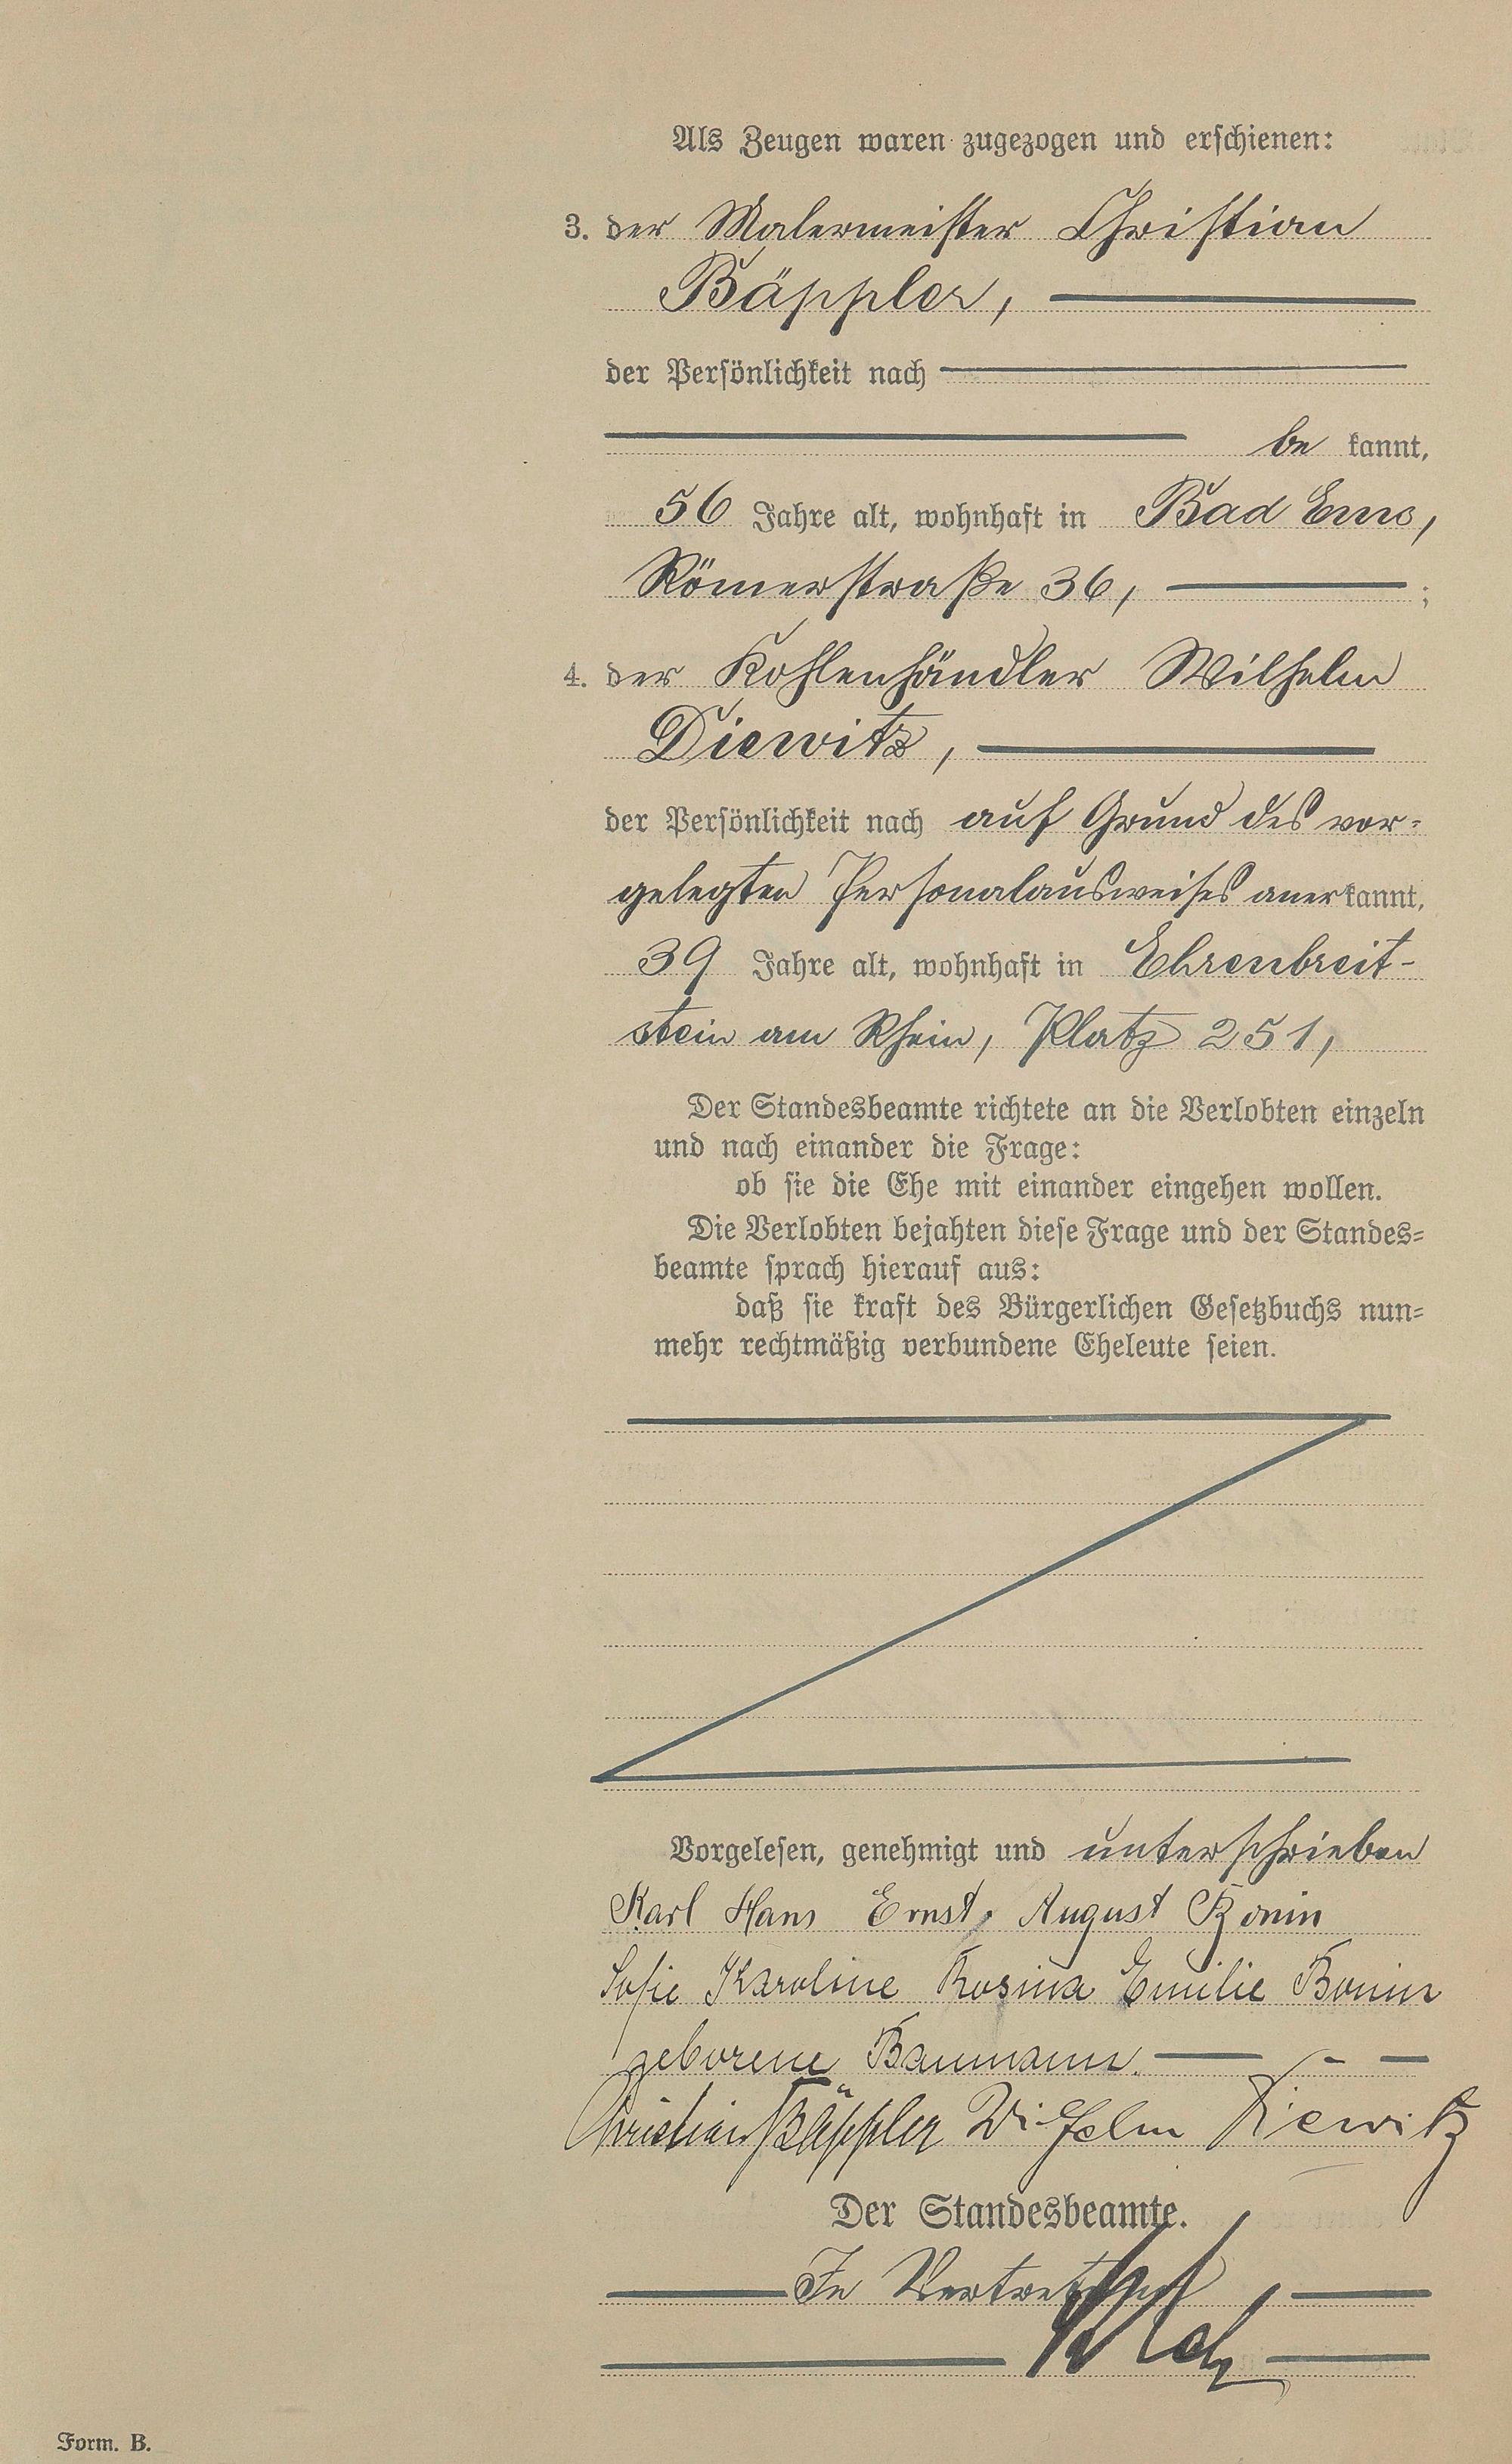 Als Zeugen waren zugezogen und erschienen:
3. der Malermeister Christian
Bäppler,
der Persönlichkeit nach
be kannt,
56 Jahre alt, wohnhaft in Bad Ems,
Römerstraße 36, ;
4. der Kohlenhändler Wilhelm
Diewitz,
der Persönlichkeit nach auf Grund des vor-
gelegten Personalausweises anerkannt,
39 Jahre alt, wohnhaft in Ehrenbreit-
stein am Rhein, Platz 251,
Der Standesbeamte richtete an die Verlobten einzeln
und nach einander die Frage:
ob sie die Ehe mit einander eingehen wollen.
Die Verlobten bejahten diese Frage und der Standes-
beamte sprach hierauf aus:
daß sie kraft des Bürgerlichen Gesetzbuchs nun-
mehr rechtmäßig verbundene Eheleute seien.
Vorgelesen, genehmigt und unterschrieben
Karl Hans Ernst, August Bonin
Sofie Karoline Rosina Emilie Bonin
geborene Baumann.
Christian Bäppler Wilhelm Diewitz
Der Standesbeamte.
In Vertretung
Form. B.